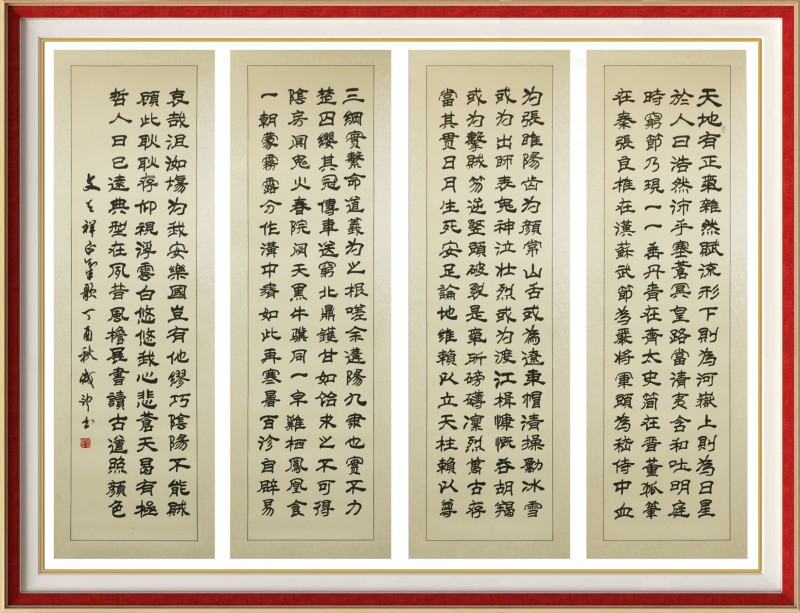 天地有正氣雜然賦流形下則為河嶽上則為日星
於人曰浩然沛乎塞蒼冥皇路當清夷含和吐明庭
時窮節乃現一一垂丹青在齊太史簡在晉董狐筆
在秦張良椎在漢蘇武節為嚴將軍頭為嵇侍中血
为張睢陽齒為顏常山舌或為遼東帽清操勵冰雪
或為出師表鬼神泣壯烈或為渡江楫慷慨吞胡羯
或為擊賊笏逆豎頭破裂是氣所磅礴凜烈萬古存
當其貫日月生死安足論地維賴以立天柱賴以尊
三綱實繫命道義为之根嗟余遘陽九隸也實不力
楚囚纓其冠傳車送窮北鼎鑊甘如飴求之不可得
陰房闃鬼火春院閟天黑牛驥同一皁雞栖鳳凰食
一朝蒙霧露分作溝中瘠如此再寒暑百沴自辟易
哀哉沮洳場为我安樂國豈有他繆巧陰陽不能賊
顧此耿耿存仰視浮雲白悠悠我心悲蒼天曷有極
哲人日已遠典型在夙昔風檐展書讀古道照顏色
文天祥正氣歌丁酉秋书